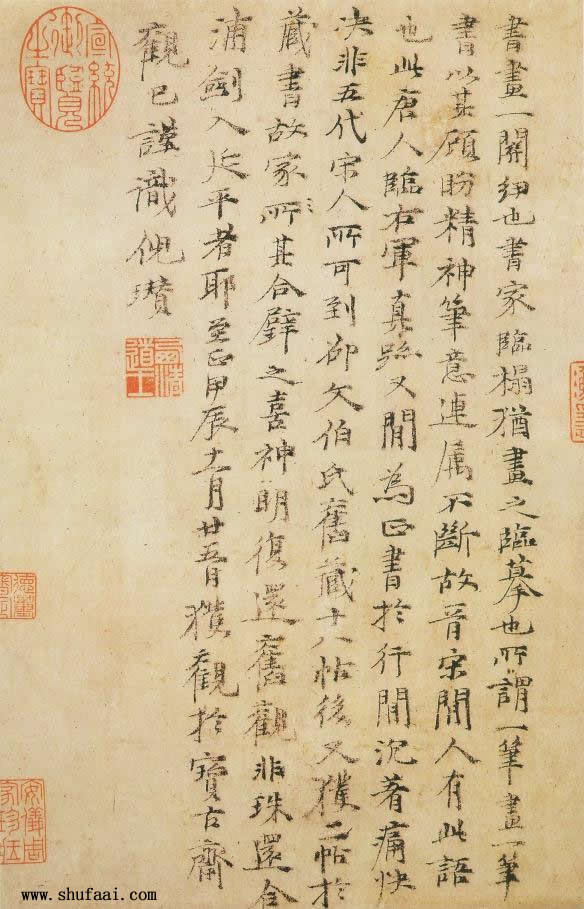 書畫一關紐也書家臨榻猶畫之臨摹也所謂一筆畫一筆
書以其顧盼精神筆意連属不斷故晋宋間人有此語
也此唐人臨右軍真跡又間為正書於行間沉著痛快
决非五代宋人所可到卻文伯氏舊藏十八帖後又獲二帖於
蔵書故家所其合璧之喜神明復還舊觀非珠還合
浦劔入延平者耶至正甲辰十一月廿五日獲觀於寶古齋
觀已謹識倪瓚
宣統御覽之寶
安儀周家珍藏
www.shufaai.com